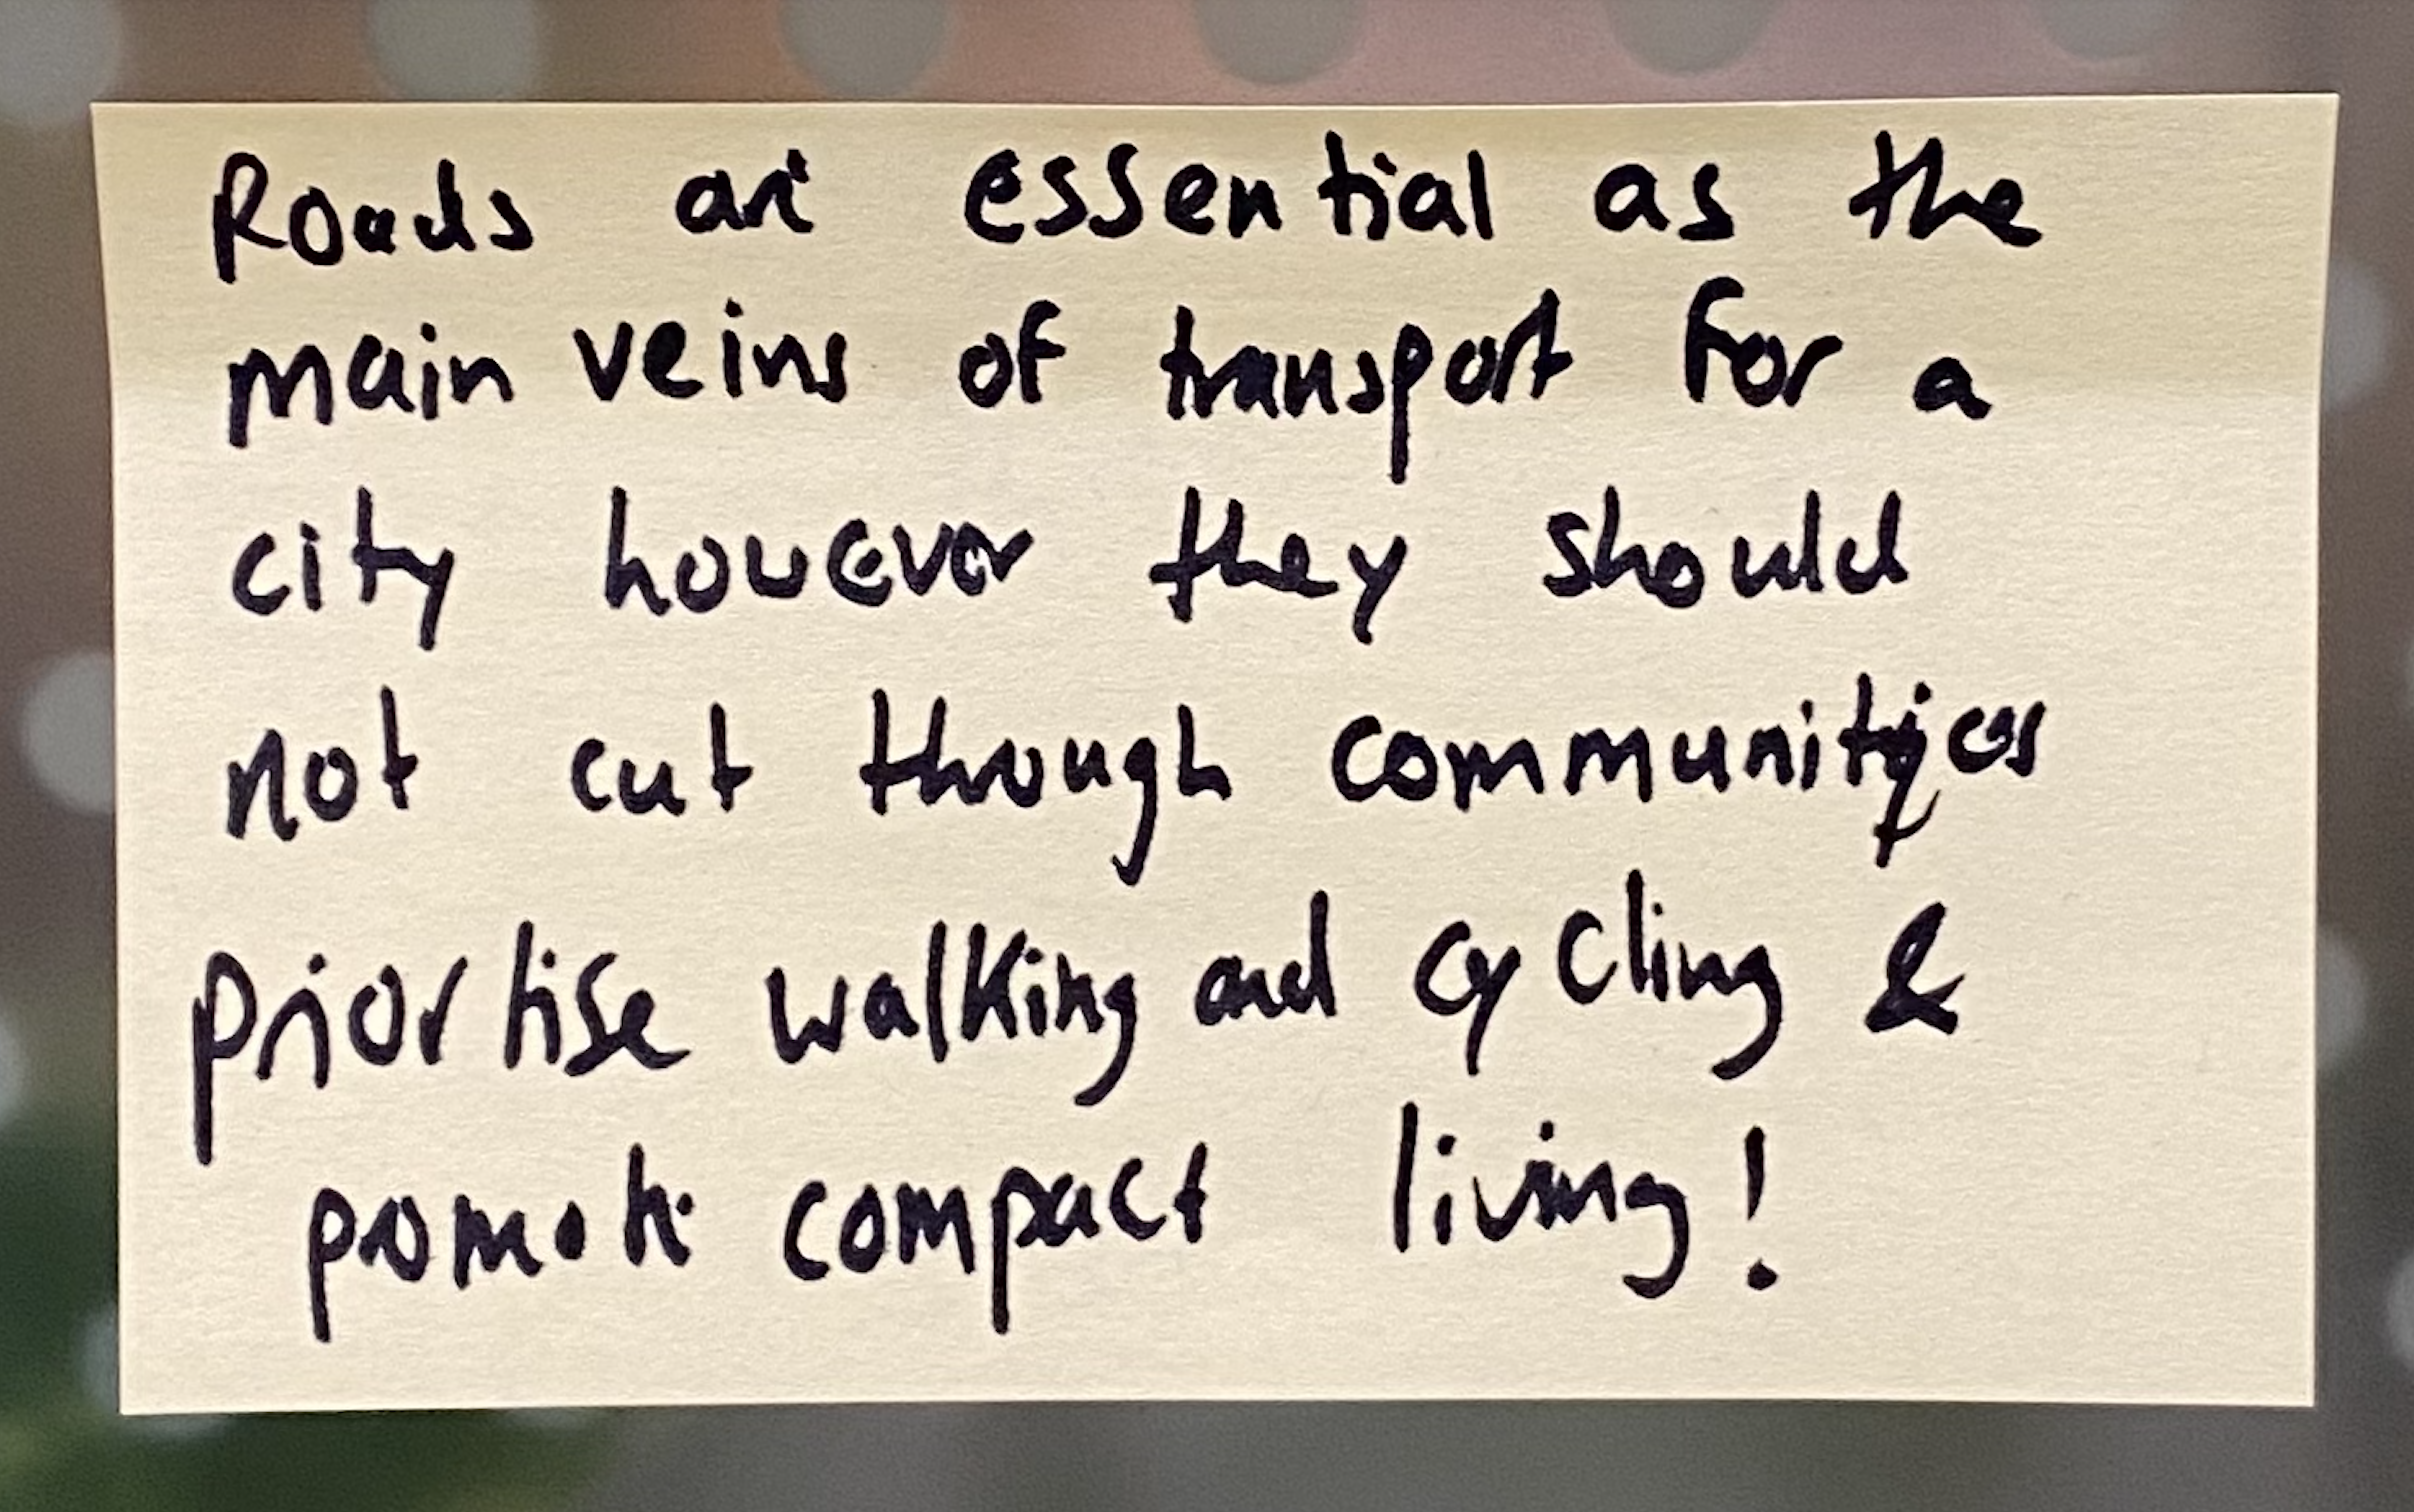 Roads are essential as the
main veins of transport for a
city however they should
not cut through communities
priortise walking and cycling &
promote compact living!